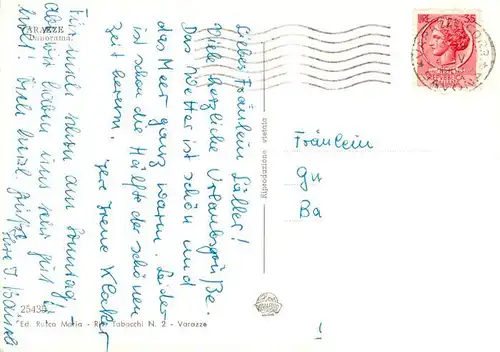 VARAZZE
Panorama
Liebes Fräulein Lüller!
Viele herzliche Urlaubsgrüße.
Das Wetter ist schön und
das Meer ganz warm. Leider
ist schon die Hälfte der schönen
Zeit herum.
Ihre Irene Klacker
Für mich schon am Sonntag!
Aber wir haben uns sehr gut
erholt! Viele herzl. Grüße
Ihre I.
Riproduzione vietata
Fräulein
Gu
Ba
25435
Ed. Rusca Maria - Riv. Tabacchi N. 2 - Varazze
35